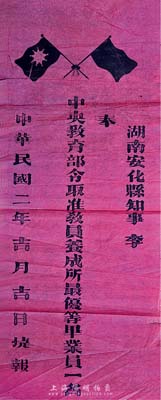 湖南安化縣知事 李
奉
中央教育部令取准教員養成所最優等畢業員一名
中華民國二年吉月吉日捷報